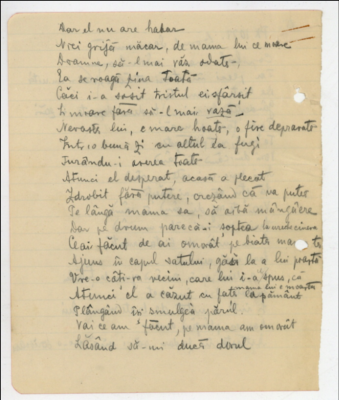 Dar el nu are habar
Nici grijă măcar, de mama lui ce moare
Doamne, să-l mai văz odată-
Ea se roagă pina toată
Căci i-a sosit tristul ei sfârșit
Și moare fără să-l mai vază
Nevasta lui, e mare hoată, o fire depravată
Într-o bună zi cu altul ea fugi
Furându-i averea toată
Atunci el desperat, acasă a plecat
Zdrobit fără putere, crezând că va putea
Pe lângă mama sa, să aibă mângâere
Dar pe drum parecă-i șoptea
Ce-ai făcut de ai omorât pe biata mamă ta
Ajuns în capul satului, găsi la a lui poartă
Vre-o câți-va vecini, care lui i-a spus, că
mama lui e moartă
Atunci el a căzut cu fața la pământ
Plângând își smulgea părul
Vai ce am făcut, pe mama am omorât
Lăsând să-mi ducă dorul